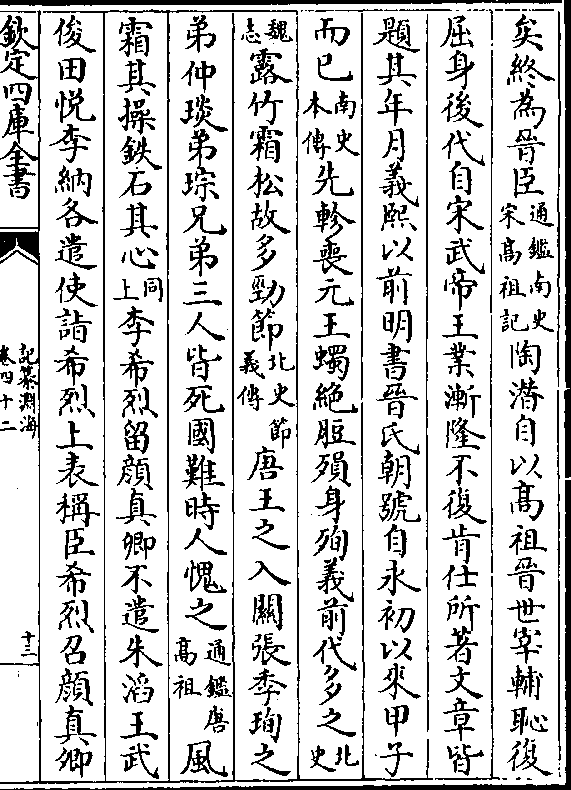 矣終為晉臣通鑑南史宋高祖記陶潛自以髙祖晉世宰輔恥復
屈身後代自宋武帝王業漸隆不復肯仕所著文章皆
題其年月義熙以前明書晉氏朝號自永初以來甲子
而已南史本傳先軫喪元王蠋絶脰殞身殉義前代多之北史
魏志露竹霜松故多勁節北史節義傳唐王之入關張季珣之
弟仲琰弟琮兄弟三人皆死國難時人愧之通鑑唐高祖風
霜其操鉄石其心同上李希烈留顔真卿不遣朱滔王武
俊田悅李納各遣使詣希烈上表稱臣希烈召顔真卿
欽定四庫全書
記纂淵海
卷四十二
十三